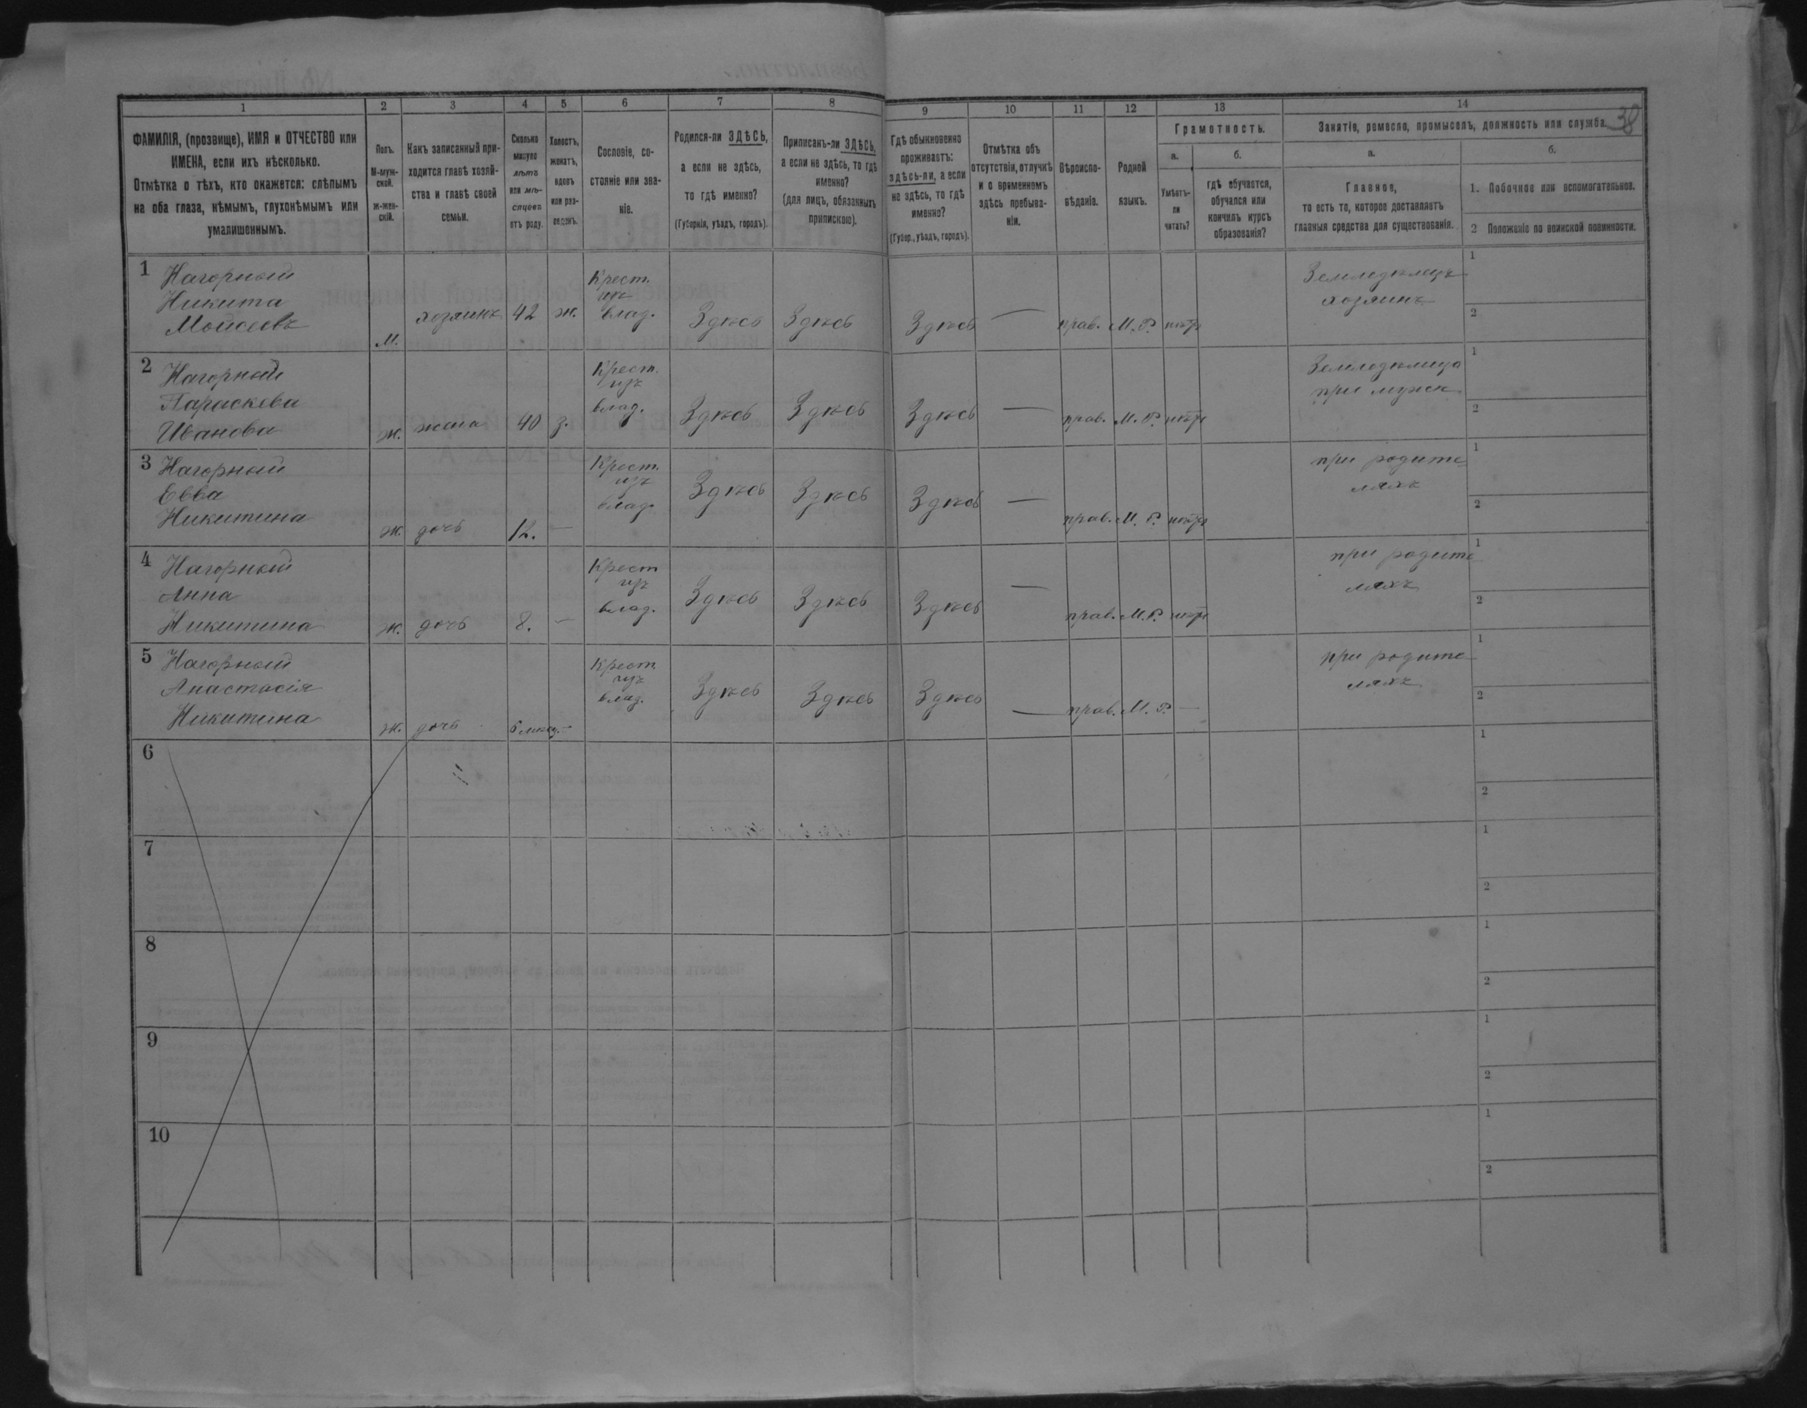 38
1 2 3 4 5 6 7 8 9 10 11 12 13 14
ФАМИЛІЯ, (прозвище), ИМЯ и ОТЧЕСТВО или
ИМЕНА, если ихъ нѣсколько.
Отмѣтка о тѣхъ, кто окажется: слѣпымъ
на оба глаза, нѣмымъ, глухонѣмымъ или
умалишеннымъ.
Полъ.
М-муж-
ской.
Ж-жен-
скій.
Какъ записанный при-
ходится главѣ хозяй-
ства и главѣ своей
семьи.
Сколько
минуло
лѣтъ
или мѣ-
сяцевъ
отъ роду.
Холостъ,
женатъ,
вдовъ
или раз-
веденъ.
Сословіе, со-
стояніе или зва-
ніе.
Родился-ли ЗДѢСЬ,
а если не здѣсь,
то гдѣ именно?
(Губернія, уѣздъ, городъ).
Приписанъ-ли ЗДѢСЬ,
а если не здѣсь, то гдѣ
именно?
(для лицъ, обязанныхъ
припискою).
Гдѣ обыкновенно
проживаетъ:
здѣсь-ли, а если
не здѣсь, то гдѣ
именно?
(Губер., уѣздъ, городъ).
Отмѣтка объ
отсутствіи, отлучкѣ
и о временномъ
здѣсь пребыва-
ніи.
Вѣроиспо-
вѣданіе.
Родной
языкъ.
Грамотность.
а. б.
Умѣетъ-
ли
читать?
гдѣ обучается,
обучался или
кончилъ курсъ
образованія?
Занятіе, ремесло, промыселъ, должность или служба.
а. б.
Главное,
то есть то, которое доставляетъ
главныя средства для существованія.
1. Побочное или вспомогательное.
2 Положеніе по воинской повинности.
1 Нагорный
Никита
Мойсеевъ
м.
хозяинъ 42 ж.
Крест.
изъ
влад.
Здѣсь Здѣсь Здѣсь — прав. М. Р. нѣтъ
Земледѣлецъ
хозяинъ
1
2
2 Нагорный
Параскева
Иванова
ж. жена 40 з.
Крест.
изъ
влад.
Здѣсь Здѣсь Здѣсь — прав. М. Р. нѣтъ
Земледѣлица
при мужѣ
1
2
3 Нагорный
Евва
Никитина
ж. дочь 12. —
Крест.
изъ
влад.
Здѣсь Здѣсь Здѣсь — прав. М. Р. нѣтъ
при родите
ляхъ
1
2
4 Нагорный
Анна
Никитина
ж. дочь 8. —
Крест
изъ
влад.
Здѣсь Здѣсь Здѣсь — прав. М. Р. нѣтъ
при родите
ляхъ
1
2
5 Нагорный
Анастасія
Никитина
ж. дочь 6 мѣсяц. —
Крест
изъ
влад.
Здѣсь Здѣсь Здѣсь — прав. М. Р. —
при родите
ляхъ
1
2
6
1
2
7
1
2
8
1
2
9
1
2
10
1
2